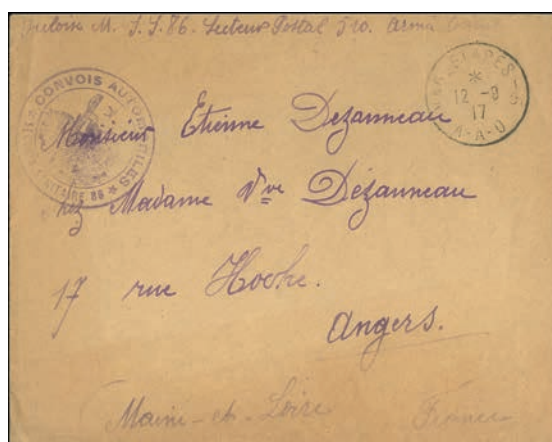 M. S.S. 86. Secteur Postal 510. Armé
CONVOIS AUTOMOBILES
SANITAIRE 86
ETAPES
*
12 -9
17
A-A-O
Monsieur Etienne Dezanneau
chez Madame Vve Dézanneau
17 rue Hoche.
Angers.
Maine-et-Loire France